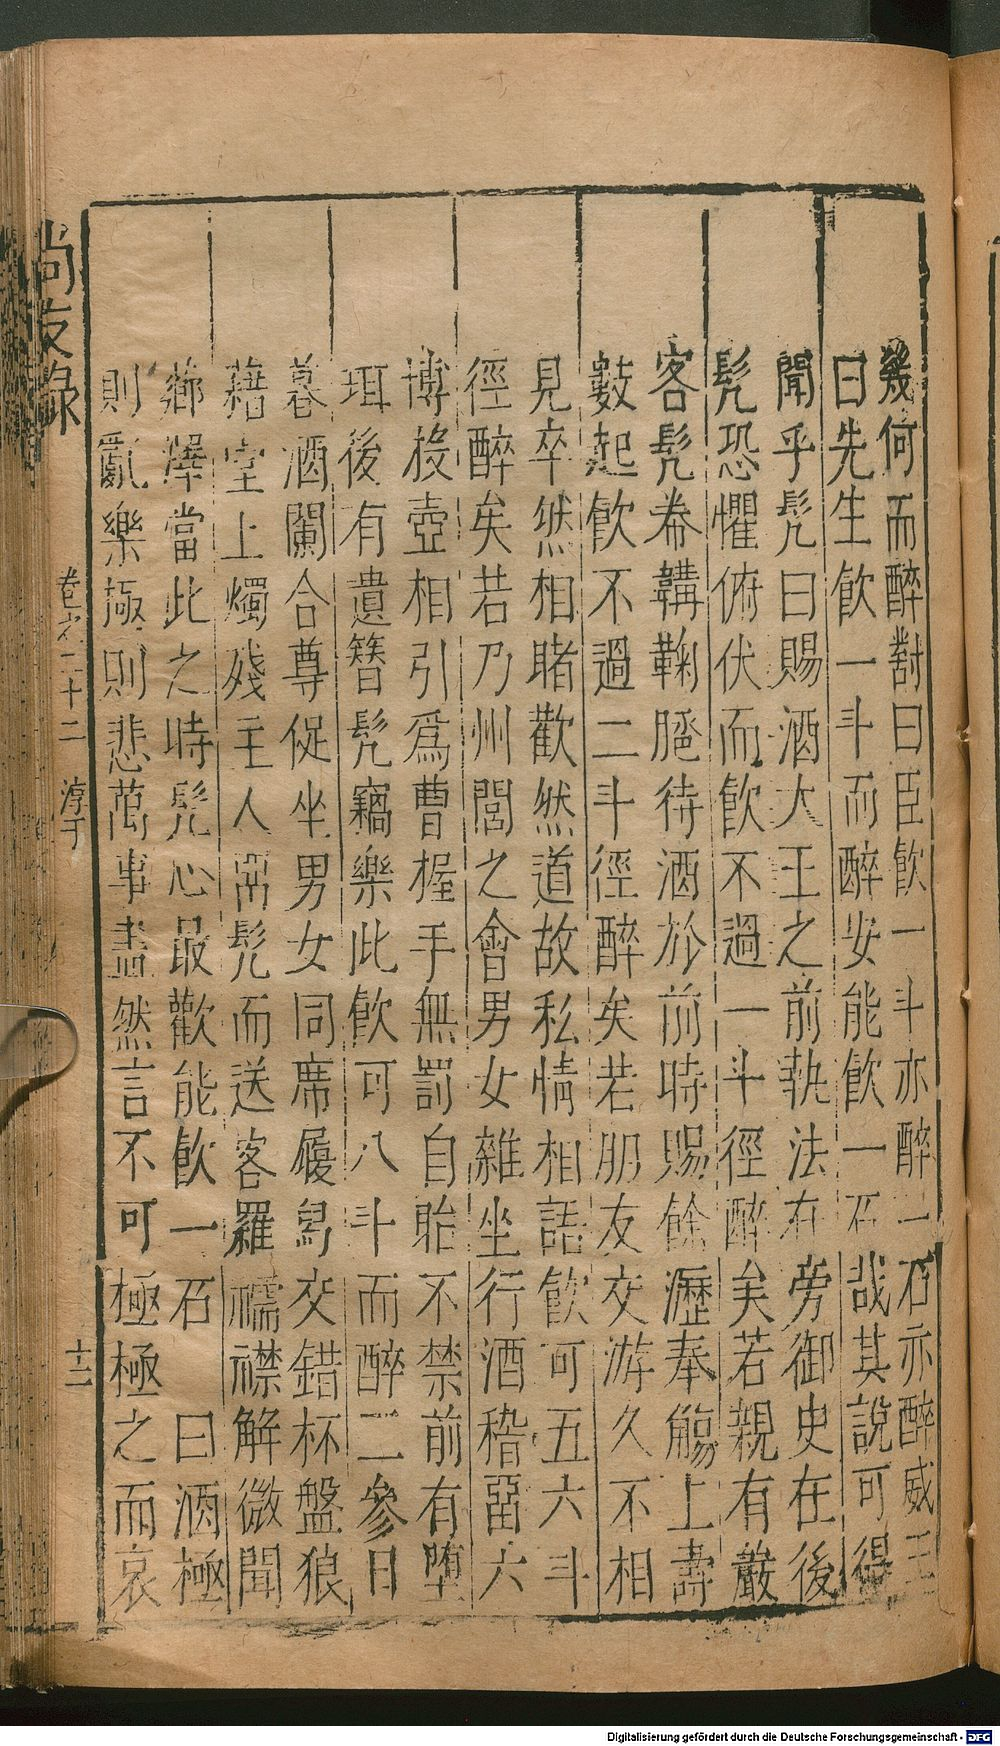 幾何而醉對曰臣飲一斗亦醉一石亦醉威王
曰先生飲一斗而醉安能飲一石哉其說可得
聞乎髠曰賜酒大王之前執法在旁御史在後
髠恐懼俯伏而飲不過一斗徑醉矣若親有嚴
客髠帣韝鞠䠆待酒於前時賜餘瀝奉觴上壽
數起飲不過二斗徑醉矣若朋友交游久不相
見卒然相睹歡然道故私情相語飲可五六斗
徑醉矣若乃州閭之會男女雜坐行酒稽畱六
博投壺相引爲曹握手無罰目眙不禁前有墮
珥後有遺簪髠竊樂此飲可八斗而醉二參日
暮酒闌合尊促坐男女同席履舄交錯杯盤狼
藉堂上燭殘主人畱髠而送客羅襦襟解微聞
薌澤當此之時髠心最歡能飲一石 曰酒極
則亂樂極則悲萬事盡然言不可極極之而哀
尚友錄
卷之二十二 淳于
十二
Digitalisierung gefördert durch die Deutsche Forschungsgemeinschaft - DFG